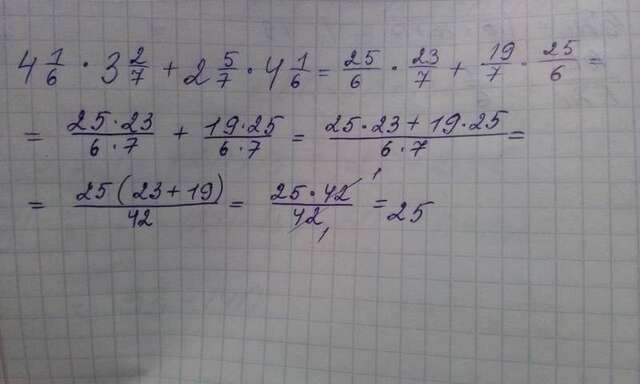 4 1/6 · 3 2/7 + 2 5/7 · 4 1/6 = 25/6 · 23/7 + 19/7 · 25/6 =
= 25·23/6·7 + 19·25/6·7 = 25·23+19·25/6·7 =
= 25(23+19)/42 = 25·42 1/42 1 = 25